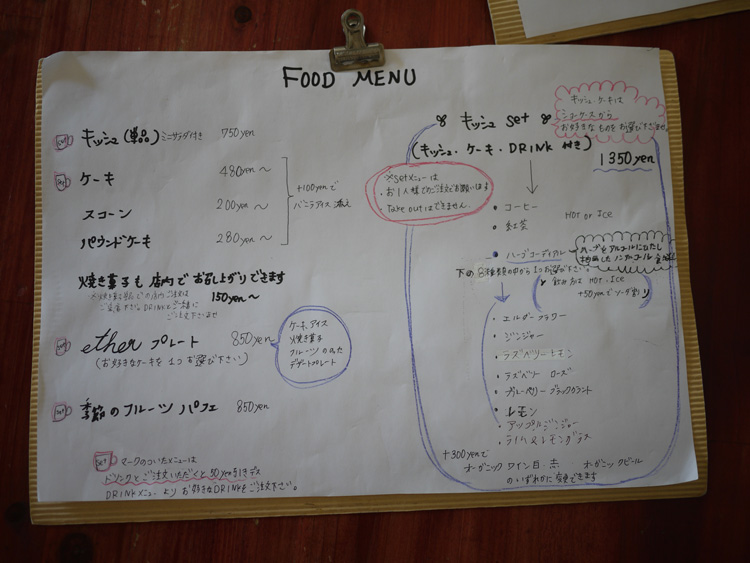 FOOD MENU
set キッシュ(単品) ミニサラダ付き 750yen
set ケーキ 480yen～
スコーン 200yen～
パウンドケーキ 280yen～
+100yenで
バニラアイス 添え
焼き菓子も 店内で お召し上がりできます
150yen～
set ether プレート 850yen
(お好きなケーキを 1つ お選び下さい)
ケーキ、アイス
焼き菓子
フルーツ のった
デザートプレート
set 季節のフルーツ パフェ 850yen
set マークのついたメニューは
ドリンクとご注文いただくと 50yen引きデス
DRINKメニュー より お好きなDRINKをご注文下さい。
キッシュ set
キッシュ、ケーキは
ショーケースから
お好きなものをお選び下さいませ
(キッシュ・ケーキ・DRINK 付き)
1350yen
※setメニューは
・お1人様でのご注文でお願いします
・Take outはできません。
• コーヒー
• 紅茶
HOT or ICE
• ハーブコーディアル
ハーブをアルコールにひたし
下の8種類の中から1つお選び下さい。
飲み方は HOT, ICE
+50yenでソーダ割り
• エルダーフラワー
• ジンジャー
• ラズベリーレモン
• ラズベリー ローズ
• ブルーベリー ブラックカラント
• レモン
• アップルジンジャー
• ライム&レモングラス
+300yenで
オーガニック ワイン 白・赤 オーガニックビール
のいずれかに 変更できます